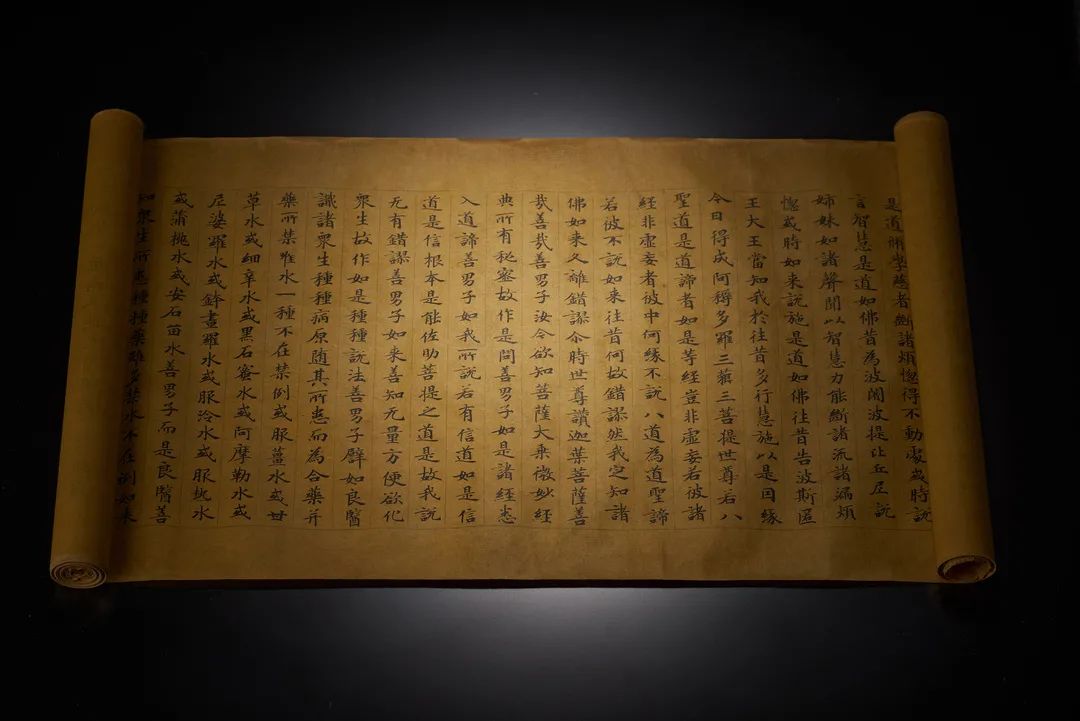 是道能學慈者斷諸煩惱得不動處或時說
言智慧是道如佛昔為波闍波提比丘尼說
姉妹如諸聲聞以智慧力能斷諸流諸漏煩
惱或時如來說施是道如佛往昔告波斯匿
王大王當知我於往昔多行慧施以是因緣
今日得成阿耨多羅三藐三菩提世尊若八
聖道是道諦者如是等經豈非虛妄若彼諸
經非虛妄者彼中何緣不說八道為道聖諦
若彼不說如來往昔何故錯謬然我定知諸
佛如來久離錯謬尒時世尊讚迦葉菩薩善
哉善哉善男子汝今欲知菩薩大乘微妙經
典所有秘密故作是問善男子如是諸經悉
入道諦善男子如我所說若有信道如是信
道是信根本是能佐助菩提之道是故我說
无有錯謬善男子如來善知无量方便欲化
眾生故作如是種種說法善男子譬如良醫
識諸眾生種種病原随其所患而為合藥并
藥所禁唯水一種不在禁例或服薑水或甘
草水或細辛水或黑石蜜水或阿摩勒水或
尼婆羅水或鉢晝羅水或服冷水或服熱水
或蒲桃水或安石留水善男子而是良醫善
知眾生所患種種藥雖多禁水不在例如來